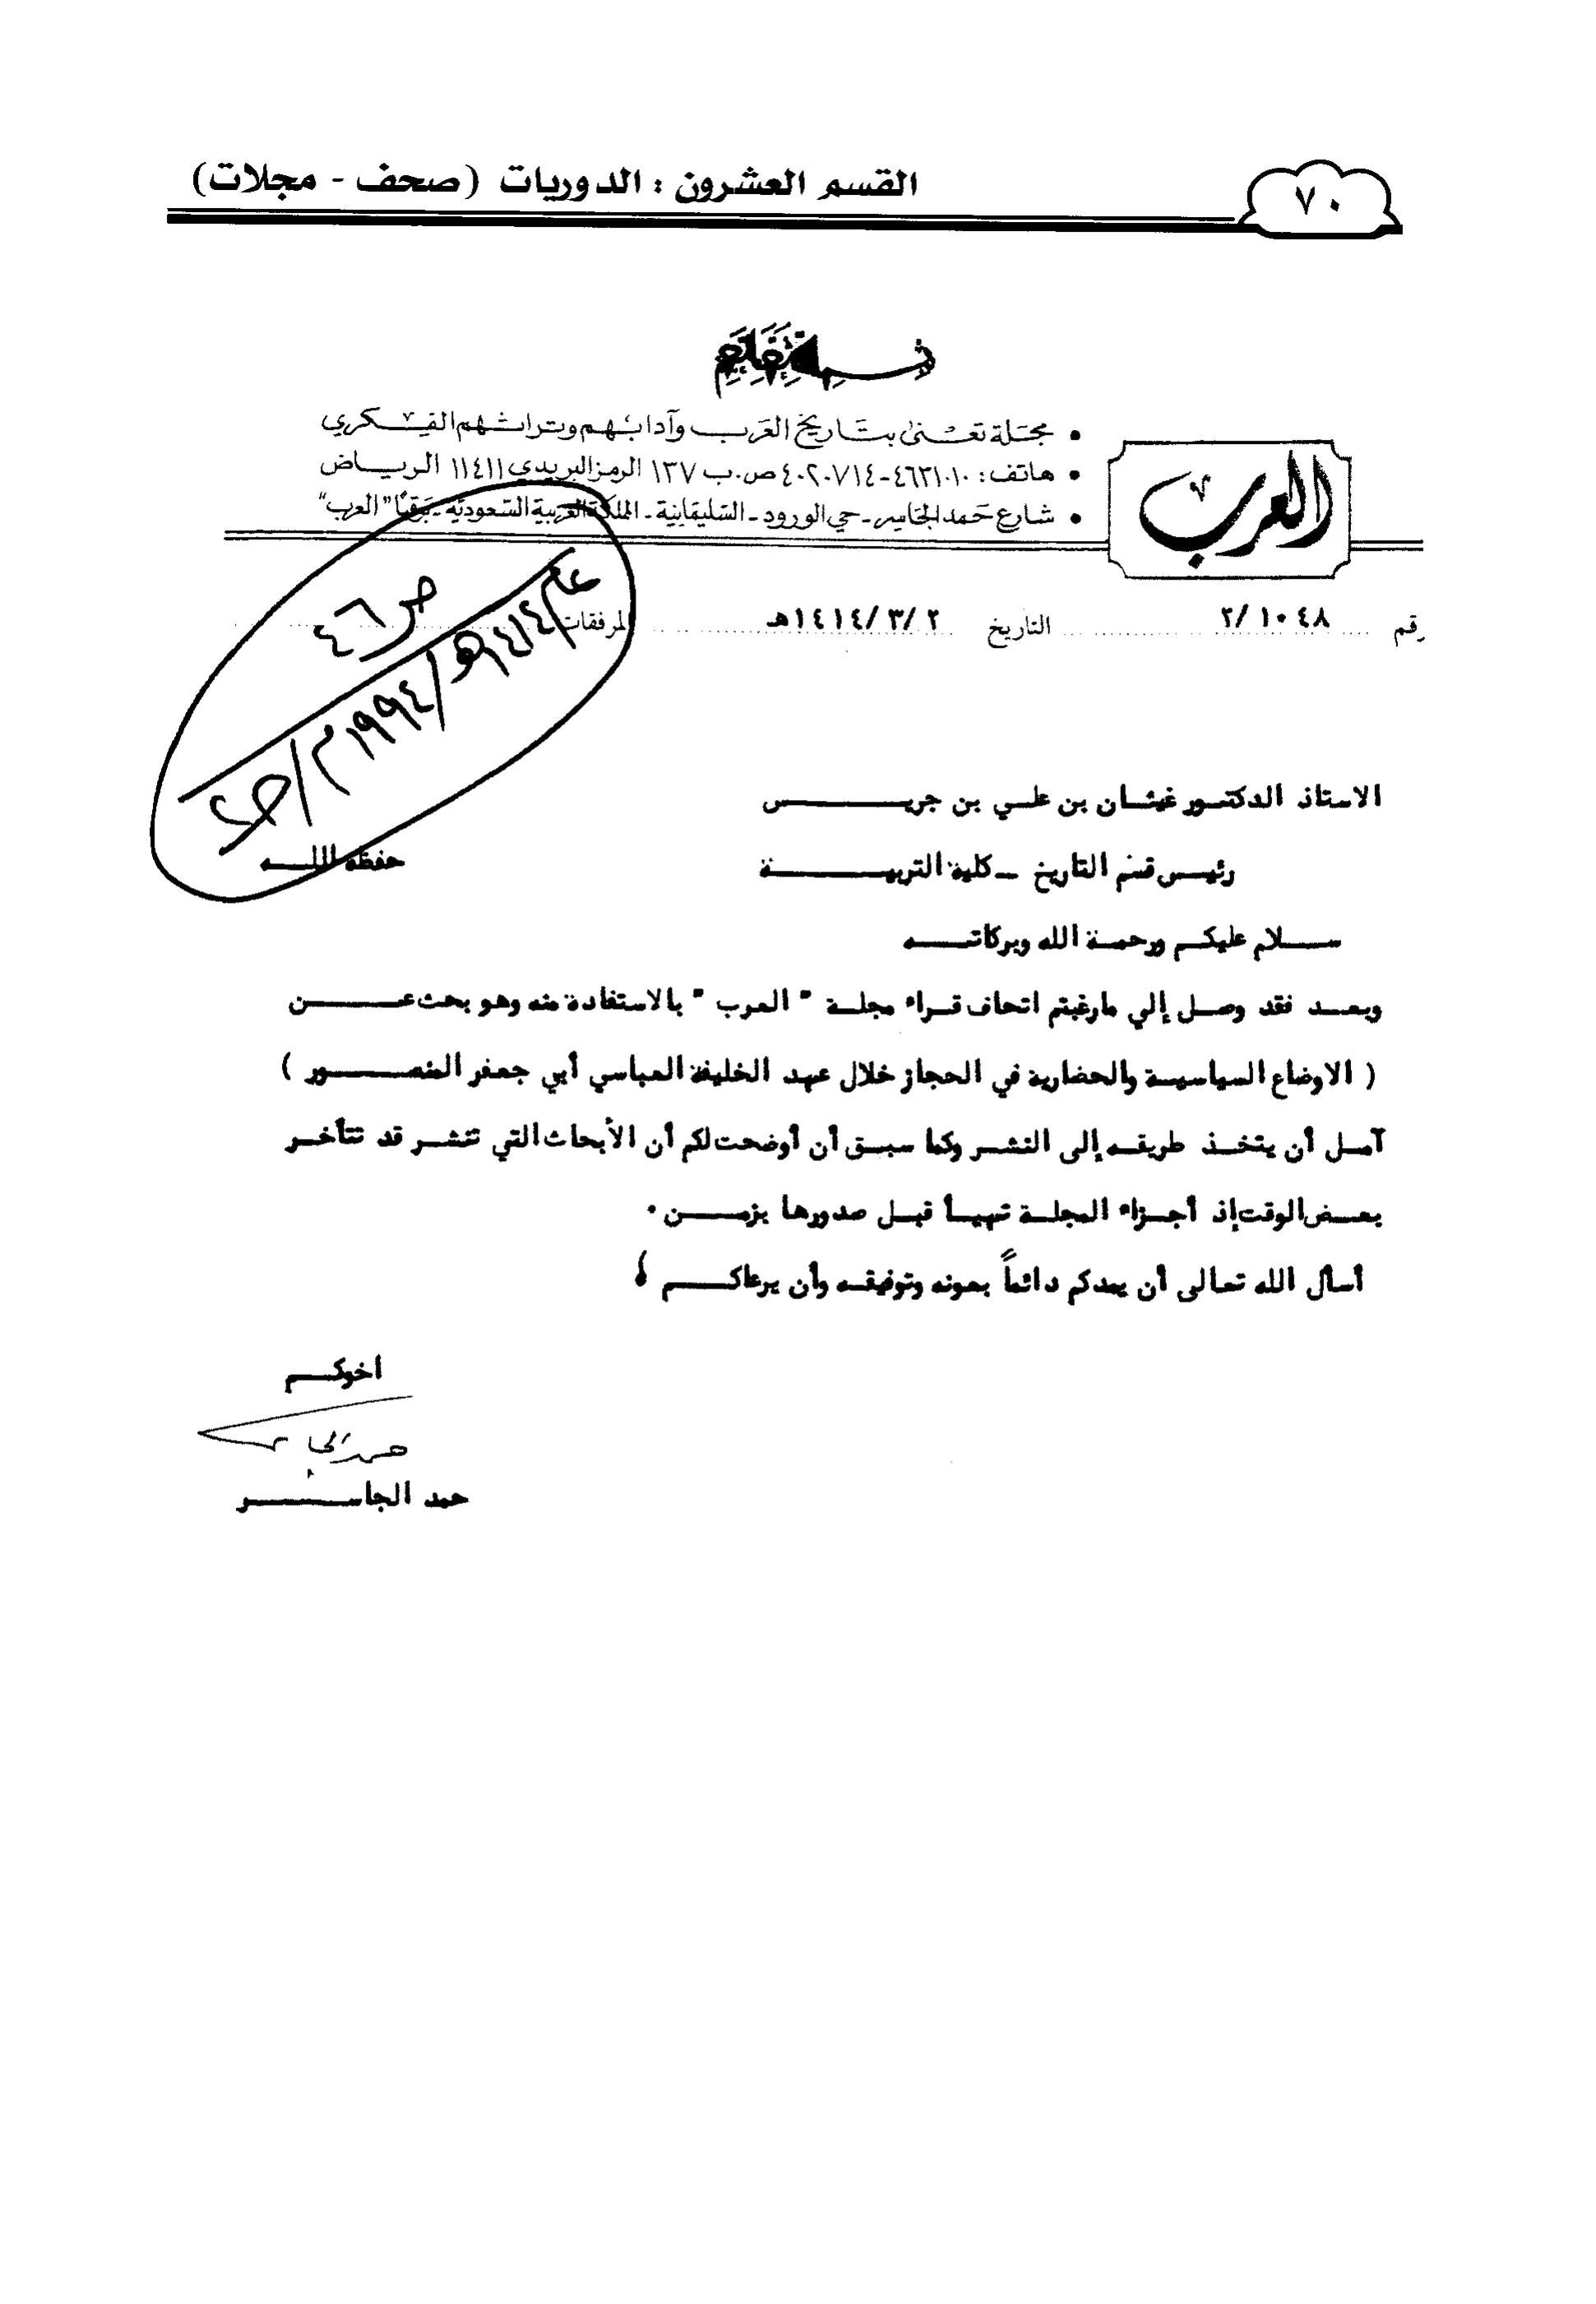 القسم العشرون : الدوريات (صحف - مجلات)
٧٠
• مجلة تعنى بتاريخ العرب وآدابهم وتراثهم الفكري
• هاتف: ٤٦٣١٠١٠-٤٠٢٠٧١٤ ص.ب ١٣٧ الرمز البريدي ١١٤١١ الرياض
• شارع حمد الجاسر - حي الورود - السليمانية - المملكة العربية السعودية - برقيًا "العرب"
العرب
رقم ٢/١٠٤٨ التاريخ ١٤١٤/٣/٢هـ المرفقات
ص ٤٦
عام ١٤١٤هـ/١٩٩٤م/
الاستاذ الدكتور غيثان بن علي بن جريس
رئيس قسم التاريخ - كلية التربية
حفظه الله
سلام عليكم ورحمة الله وبركاته
وبعد فقد وصل إلي مارغبتم اتحاف قراء مجلة " العرب " بالاستفادة منه وهو بحث عن
( الاوضاع السياسية والحضارية في الحجاز خلال عهد الخليفة العباسي أبي جعفر المنصور )
آمل أن يتخذ طريقه إلى النشر وكما سبق أن أوضحت لكم أن الأبحاث التي تنشر قد تتأخر
بعض الوقت إذ أجزاء المجلة تهيأ قبل صدورها بزمن .
أسأل الله تعالى أن يمدكم دائماً بعونه وتوفيقه وأن يرعاكم
اخوكم
حمد الجاسر
حمد الجاسر